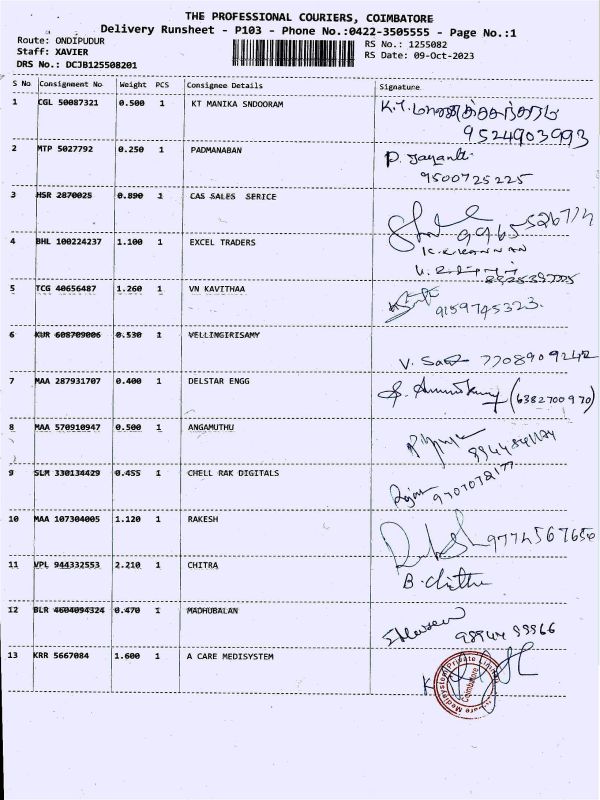 THE PROFESSIONAL COURIERS, COIMBATORE
Delivery Runsheet - P103 - Phone No.:0422-3505555 - Page No.:1
Route: ONDIPUDUR
RS No.: 1255082
Staff: XAVIER
RS Date: 09-Oct-2023
DRS No.: DCJB125508201
S No Consignment No Weight PCS Consignee Details Signature
1 CGL 50087321 0.500 1 KT MANIKA SNDOORAM
9524903993
2 MTP 5027792 0.250 1 PADMANABAN P. Jayanti
9500725225
3 HSR 2870025 0.890 1 CAS SALES SERICE
4 BHL 100224237 1.100 1 EXCEL TRADERS
K.K.KANNAN
5 TCG 40656487 1.260 1 VN KAVITHAA
9159745323.
6 KUR 608709006 0.530 1 VELLINGIRISAMY
V. 7708909242
7 MAA 287931707 0.400 1 DELSTAR ENGG
(6382700970)
8 MAA 570910947 0.500 1 ANGAMUTHU
9 SLM 330134429 0.455 1 CHELL RAK DIGITALS
10 MAA 107304005 1.120 1 RAKESH
9774567656
11 VPL 944332553 2.210 1 CHITRA
B. Chithra
12 BLR 4604094324 0.470 1 MADHUBALAN
13 KRR 5667084 1.600 1 A CARE MEDISYSTEM
Medisystem Private Limited
Coimbatore